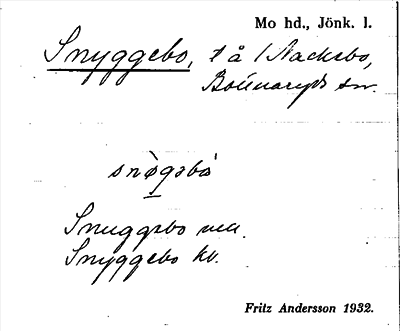 Mo hd., Jönk. l.
Snyggebo, t å /Nacksbo,
Bottnaryds sn.
snø̀gəbo
Snuggebo ved.
Snyggebo kv.
Fritz Andersson 1932.